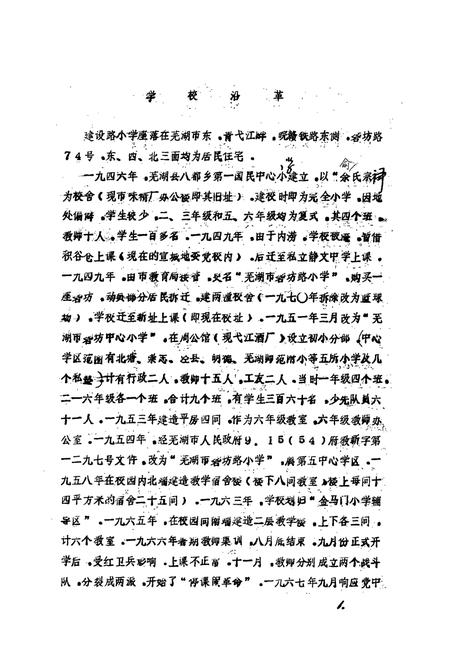 学校沿革
建设路小学座落在芜湖市东，青弋江畔，皖赣铁路东测，砻坊路
74号，东、四、北三面均为居民住宅。
一九四六年，芜湖县八都乡第一国民中心小学建立，以“余氏宗祠
为校舍（现市味精厂办公楼即其旧址），建校时即为完全小学，因地
处偏僻，学生较少，二、三年级和五、六年级均为复式，其四个班，
教师十人，学生一百多名，一九四九年，由于内涝，学校被淹，暂借
积谷仓上课（现在的宣城地委党校内），后迁至私立静文中学上课，
一九四九年，由市教育局接管，更名“芜湖市砻坊路小学”，购买一
座砻坊，动员部分居民拆迁，建两道校舍（一九七〇年拆除改为篮球
场），学校迁至新址上课（即现在校址），一九五一年三月改为“芜
湖市砻坊中心小学”，在周公馆（现弋江酒厂）设立初小分部，（中心
学区范围有北塘、崇志、泾县、明德、芜湖师范附小等五所小学及几
个私塾）计有行政二人，教师十五人，工友二人，当时一年级四个班，
二一六年级各一个班，合计九个班，有学生三百六十名，少先队员六
十一人，一九五三年建造平房四间，作为六年级教室，六年级教师办
公室，一九五四年，经芜湖市人民政府9．15（54）府教新字第
一二九七号文件，改为“芜湖市砻坊路小学”，属第五中心学区，一
九五八年在校园内北端建造教学宿舍楼（楼下八间教室，楼上每间十
四平方米的宿舍二十五间），一九六三年，学校划归“金马门小学辅
导区”，一九六五年，在校园南端建造二层教学楼，上下各三间，
计六个教室，一九六六年暑期教师集训，八月底结束，九月份正式开
学后，受红卫兵影响，上课不正常，十一月，教师分别成立两个战斗
队，分裂成两派，开始了“停课闹革命”，一九六七年九月响应党中
1.